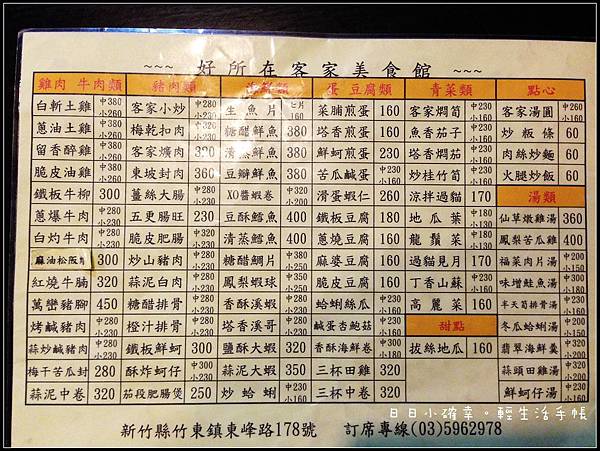 ~~~ 好所在客家美食館 ~~~
雞肉 牛肉類 豬肉類 海鮮類 蛋 豆腐類 青菜類 點心
白斬土雞 中380 小260 客家小炒 中280 小230 生魚片 160 菜脯煎蛋 160 客家燜筍 中230 小160 客家湯圓 中260 小160
蔥油土雞 中380 小260 梅乾扣肉 中320 小230 糖醋鮮魚 380 塔香煎蛋 160 魚香茄子 中230 小160 炒粄條 60
留香醉雞 中380 小260 客家爌肉 320 清蒸鮮魚 380 鮮蚵煎蛋 230 塔香燜茄 中230 小160 肉絲炒麵 60
脆皮油雞 中380 小260 東坡封肉 360 豆瓣鮮魚 380 苦瓜鹹蛋 中230 小160 炒桂竹筍 中230 小160 火腿炒飯 60
鐵板牛柳 300 薑絲大腸 中280 小230 XO醬蝦卷 中320 小200 滑蛋蝦仁 260 涼拌過貓 170 湯類
蔥爆牛肉 中280 小230 五更腸旺 230 豆酥鱈魚 400 鐵板豆腐 180 地瓜葉 中180 小130 仙草燉雞湯 360
白灼牛肉 中280 小230 脆皮肥腸 中320 小230 清蒸鱈魚 400 蔥燒豆腐 160 龍鬚菜 中180 小130 鳳梨苦瓜雞 400
麻油松阪 300 炒山豬肉 中280 小230 糖醋鯛片 中380 小250 麻婆豆腐 160 過貓見月 170 福菜肉片湯 中200 小150
紅燒牛腩 320 蒜泥白肉 中280 小230 鳳梨蝦球 中350 小250 脆皮豆腐 160 丁香山蘇 中230 小160 味增鮭魚湯 中280 小180
萬巒豬腳 450 糖醋排骨 中280 小230 香酥溪蝦 中280 小230 蛤蜊絲瓜 中230 小160 高麗菜 160 半天筍排骨湯 中250 小200
烤鹹豬肉 中280 小230 橙汁排骨 中280 小230 塔香溪哥 中280 小230 鹹蛋杏鮑菇 中230 小160 甜點 冬瓜蛤蜊湯 中200 小150
蒜炒鹹豬肉 中280 小230 鐵板鮮蚵 300 鹽酥大蝦 320 香酥海鮮卷 中300 小180 拔絲地瓜 160 翡翠海鮮羹 中320 小200
梅干苦瓜封 280 酥炸蚵仔 中300 小230 蒜泥大蝦 320 三杯田雞 320 蒜頭田雞湯 中320 小200
蒜泥中卷 320 茄段肥腸煲 250 炒蛤蜊 中230 小160 三杯中卷 320 鮮蚵仔湯 中320 小200
新竹縣竹東鎮東峰路178號 訂席專線(03)5962978
日日小確幸。輕生活手帳